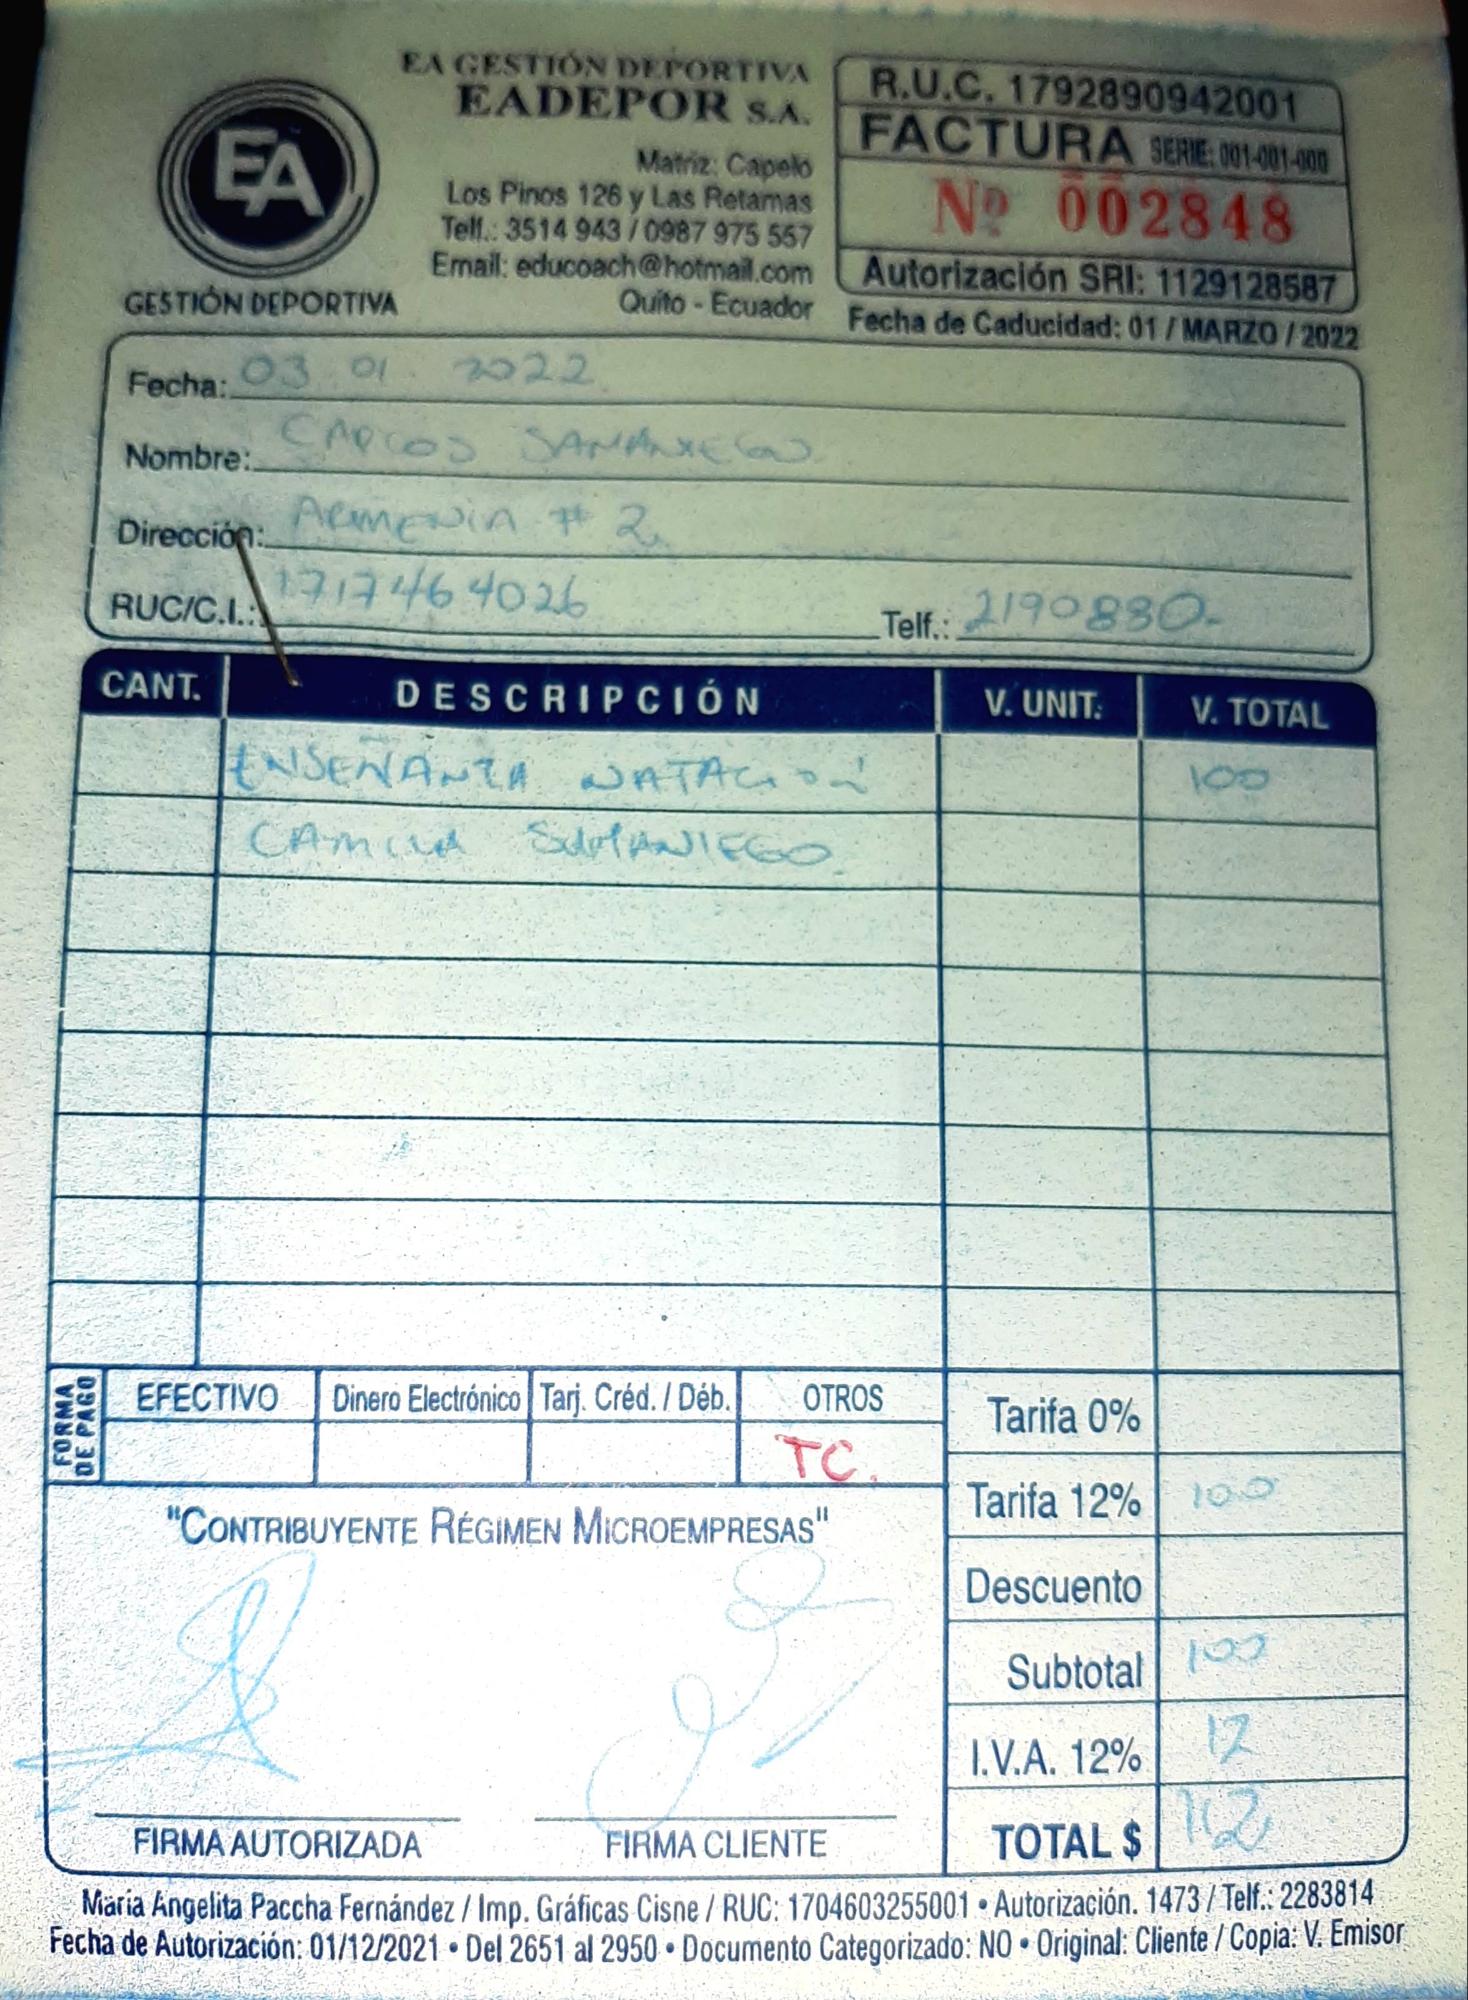 EA GESTIÓN DEPORTIVA
EADEPOR S.A.
Matriz: Capelo
Los Pinos 126 y Las Retamas
Telf.: 3514 943 / 0987 975 557
Email: educoach@hotmail.com
Quito - Ecuador
EA
GESTIÓN DEPORTIVA
R.U.C. 1792890942001
FACTURA SERIE: 001-001-000
Nº 002848
Autorización SRI: 1129128587
Fecha de Caducidad: 01 / MARZO / 2022
Fecha: 03 01. 2022
Nombre: CARLOS SAMANIEGO
Dirección: ARMENIA # 2
RUC/C.I.: 1717464026 Telf.: 2190880-
CANT. DESCRIPCIÓN V. UNIT. V. TOTAL
ENSEÑANZA NATACION 100
CAMILA SAMANIEGO
FORMA DE PAGO
EFECTIVO Dinero Electrónico Tarj. Créd. / Déb. OTROS
TC.
Tarifa 0%
Tarifa 12% 100
Descuento
Subtotal 100
I.V.A. 12% 12
TOTAL $ 112
"CONTRIBUYENTE RÉGIMEN MICROEMPRESAS"
FIRMA AUTORIZADA FIRMA CLIENTE
María Angelita Paccha Fernández / Imp. Gráficas Cisne / RUC: 1704603255001 • Autorización. 1473 / Telf.: 2283814
Fecha de Autorización: 01/12/2021 • Del 2651 al 2950 • Documento Categorizado: NO • Original: Cliente / Copia: V. Emisor